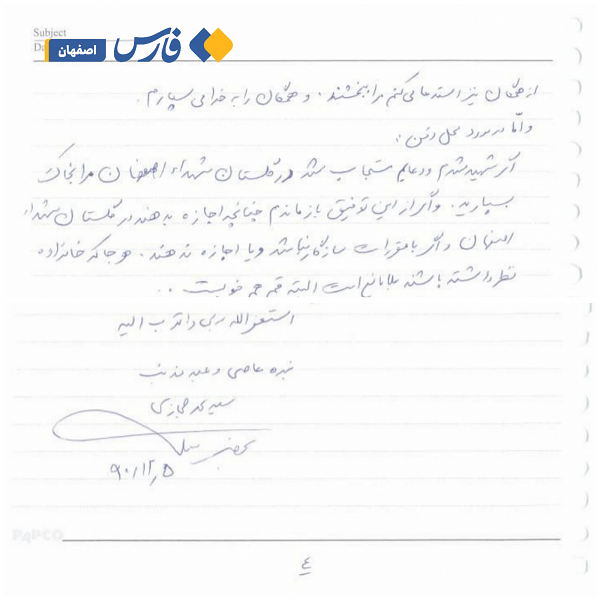 Subject
Da
فارس
اصفهان
از همگان نیز استدعا می‌کنم مرا ببخشند. و همگان را به خدا می سپارم.
و امّا در مورد محل دفن:
اگر شهید شدم و دعایم مستجاب شد در گلستان شهداء اصفهان مرا بخاک
بسپارید. و اگر از این توفیق بازماندم چنانچه اجازه بدهند در گلستان شهداء
اصفهان و اگر با مقررات سازگار نباشد و یا اجازه ندهند. هر جا که خانواده
نظر داشته باشند بلامانع است البته قم هم خوبست ..
استغفرالله ربی و اتوب الیه
بنده عاصی و عبد مذنب
سید محمد حجازی
۹۰/۱۲/۵
PAPCO
٤